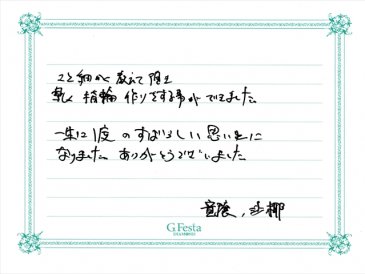 こと細かく教えて頂き
楽しく指輪作りをする事ができました
一生に1度のすばらしい思い出に
なりました ありがとうございました
G.Festa